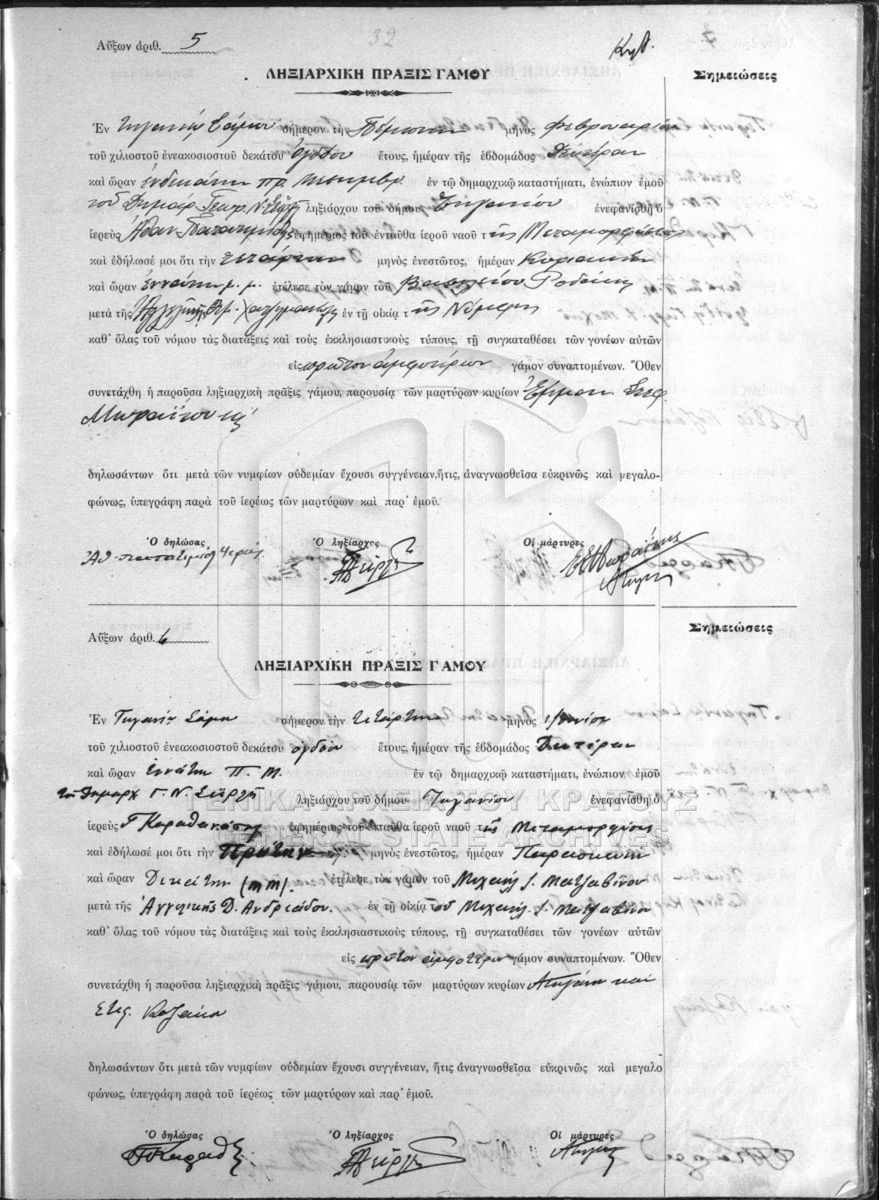 Αὔξων ἀριθ. 5
32
ΛΗΞΙΑΡΧΙΚΗ ΠΡΑΞΙΣ ΓΑΜΟΥ
Σημειώσεις
Ἐν Τηγανίῳ Σάμου σήμερον τὴν Πέμπτην μηνὸς Φεβρουαρίου
τοῦ χιλιοστοῦ ἐνεακοσιοστοῦ δεκάτου ὀγδόου ἔτους, ἡμέραν τῆς ἑβδομάδος Δευτέραν
καὶ ὥραν ἑνδεκάτην πρ. μεσημβρ. ἐν τῷ δημαρχικῷ καταστήματι, ἐνώπιον ἐμοῦ
τοῦ Δημάρ. Γεωρ. Ν. ληξιάρχου τοῦ δήμου Τηγανίου ἐνεφανίσθη ὁ
ἱερεὺς Ἀθαν. ἐφημέριος τοῦ ἐνταῦθα ἱεροῦ ναοῦ τῆς Μεταμορφώσεως
καὶ ἐδήλωσέ μοι ὅτι τὴν τετάρτην μηνὸς ἐνεστῶτος, ἡμέραν Κυριακὴν
καὶ ὥραν ἐννάτην μ. μ. ἐτέλεσε τὸν γάμον τοῦ Βασιλείου
μετὰ τῆς ἐν τῇ οἰκίᾳ τῆς Νύμφης
καθ᾽ ὅλας τοῦ νόμου τὰς διατάξεις καὶ τοὺς ἐκκλησιαστικοὺς τύπους, τῇ συγκαταθέσει τῶν γονέων αὐτῶν
εἰς πρῶτον ἀμφοτέρων γάμον συναπτομένων. Ὅθεν
συνετάχθη ἡ παροῦσα ληξιαρχικὴ πρᾶξις γάμου, παρουσίᾳ τῶν μαρτύρων κυρίων
δηλωσάντων ὅτι μετὰ τῶν νυμφίων οὐδεμίαν ἔχουσι συγγένειαν, ἥτις, ἀναγνωσθεῖσα εὐκρινῶς καὶ μεγαλο-
φώνως, ὑπεγράφη παρὰ τοῦ ἱερέως τῶν μαρτύρων καὶ παρ᾽ ἐμοῦ.
Ὁ δηλώσας Ὁ ληξίαρχος Οἱ μάρτυρες
Αὔξων ἀριθ. 6
Σημειώσεις
ΛΗΞΙΑΡΧΙΚΗ ΠΡΑΞΙΣ ΓΑΜΟΥ
Ἐν Τηγανίῳ Σάμου σήμερον τὴν τετάρτην μηνὸς Ἰουνίου
τοῦ χιλιοστοῦ ἐνεακοσιοστοῦ δεκάτου ὀγδόου ἔτους, ἡμέραν τῆς ἑβδομάδος Δευτέραν
καὶ ὥραν ἐννάτην Π. Μ. ἐν τῷ δημαρχικῷ καταστήματι, ἐνώπιον ἐμοῦ
τοῦ Δημάρχ Γ. Ν. ληξιάρχου τοῦ δήμου Τηγανίου ἐνεφανίσθη ὁ
ἱερεὺς Γ Καραθανάσης ἐφημέριος τοῦ ἐνταῦθα ἱεροῦ ναοῦ τῆς Μεταμορφώσεως
ΓΕΝΙΚΑ ΑΡΧΕΙΑ ΤΟΥ ΚΡΑΤΟΥΣ
GENERAL STATE ARCHIVES
καὶ ἐδήλωσέ μοι ὅτι τὴν Πρώτην μηνὸς ἐνεστῶτος, ἡμέραν Παρασκευὴν
καὶ ὥραν Δεκάτην (μμ). ἐτέλεσε τὸν γάμον τοῦ Μιχαὴλ Ι. Ματζαβίνου
μετὰ τῆς Ἀγγελικῆς Δ. Ἀνδριάδου ἐν τῇ οἰκίᾳ τοῦ Μιχαὴλ Ι. Ματζαβίνου
καθ᾽ ὅλας τοῦ νόμου τὰς διατάξεις καὶ τοὺς ἐκκλησιαστικοὺς τύπους, τῇ συγκαταθέσει τῶν γονέων αὐτῶν
εἰς πρῶτον ἀμφοτέρων γάμον συναπτομένων. Ὅθεν
συνετάχθη ἡ παροῦσα ληξιαρχικὴ πρᾶξις γάμου, παρουσίᾳ τῶν μαρτύρων κυρίων καὶ
δηλωσάντων ὅτι μετὰ τῶν νυμφίων οὐδεμίαν ἔχουσι συγγένειαν, ἥτις ἀναγνωσθεῖσα εὐκρινῶς καὶ μεγαλο
φώνως, ὑπεγράφη παρὰ τοῦ ἱερέως τῶν μαρτύρων καὶ παρ᾽ ἐμοῦ.
Ὁ δηλώσας Ὁ ληξίαρχος Οἱ μάρτυρες